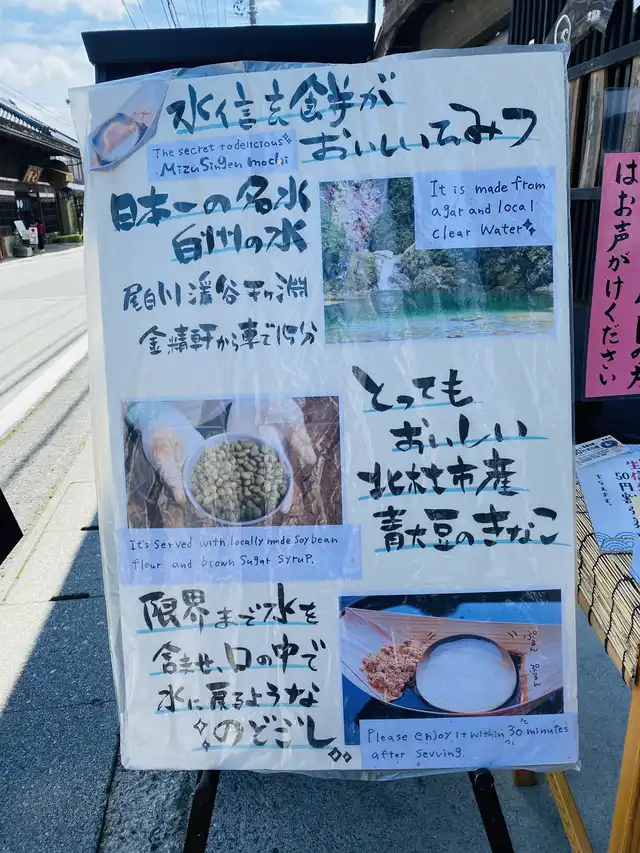 水信玄餅が
おいしいひみつ
The secret to delicious
Mizu Singen mochi
日本一の名水
白州の水
It is made from
agar and local
clear water
尾白川渓谷千ヶ淵
金精軒から車で15分
とっても
おいしい
北杜市産
青大豆のきなこ
It's served with locally made soybean
flour and brown sugar syrup.
限界まで水を
含ませ、口の中で
水に戻るような
のどごし
ぷるん
ぷるん
Please enjoy it within 30 minutes
after serving.
はお声がけください
生信
50円